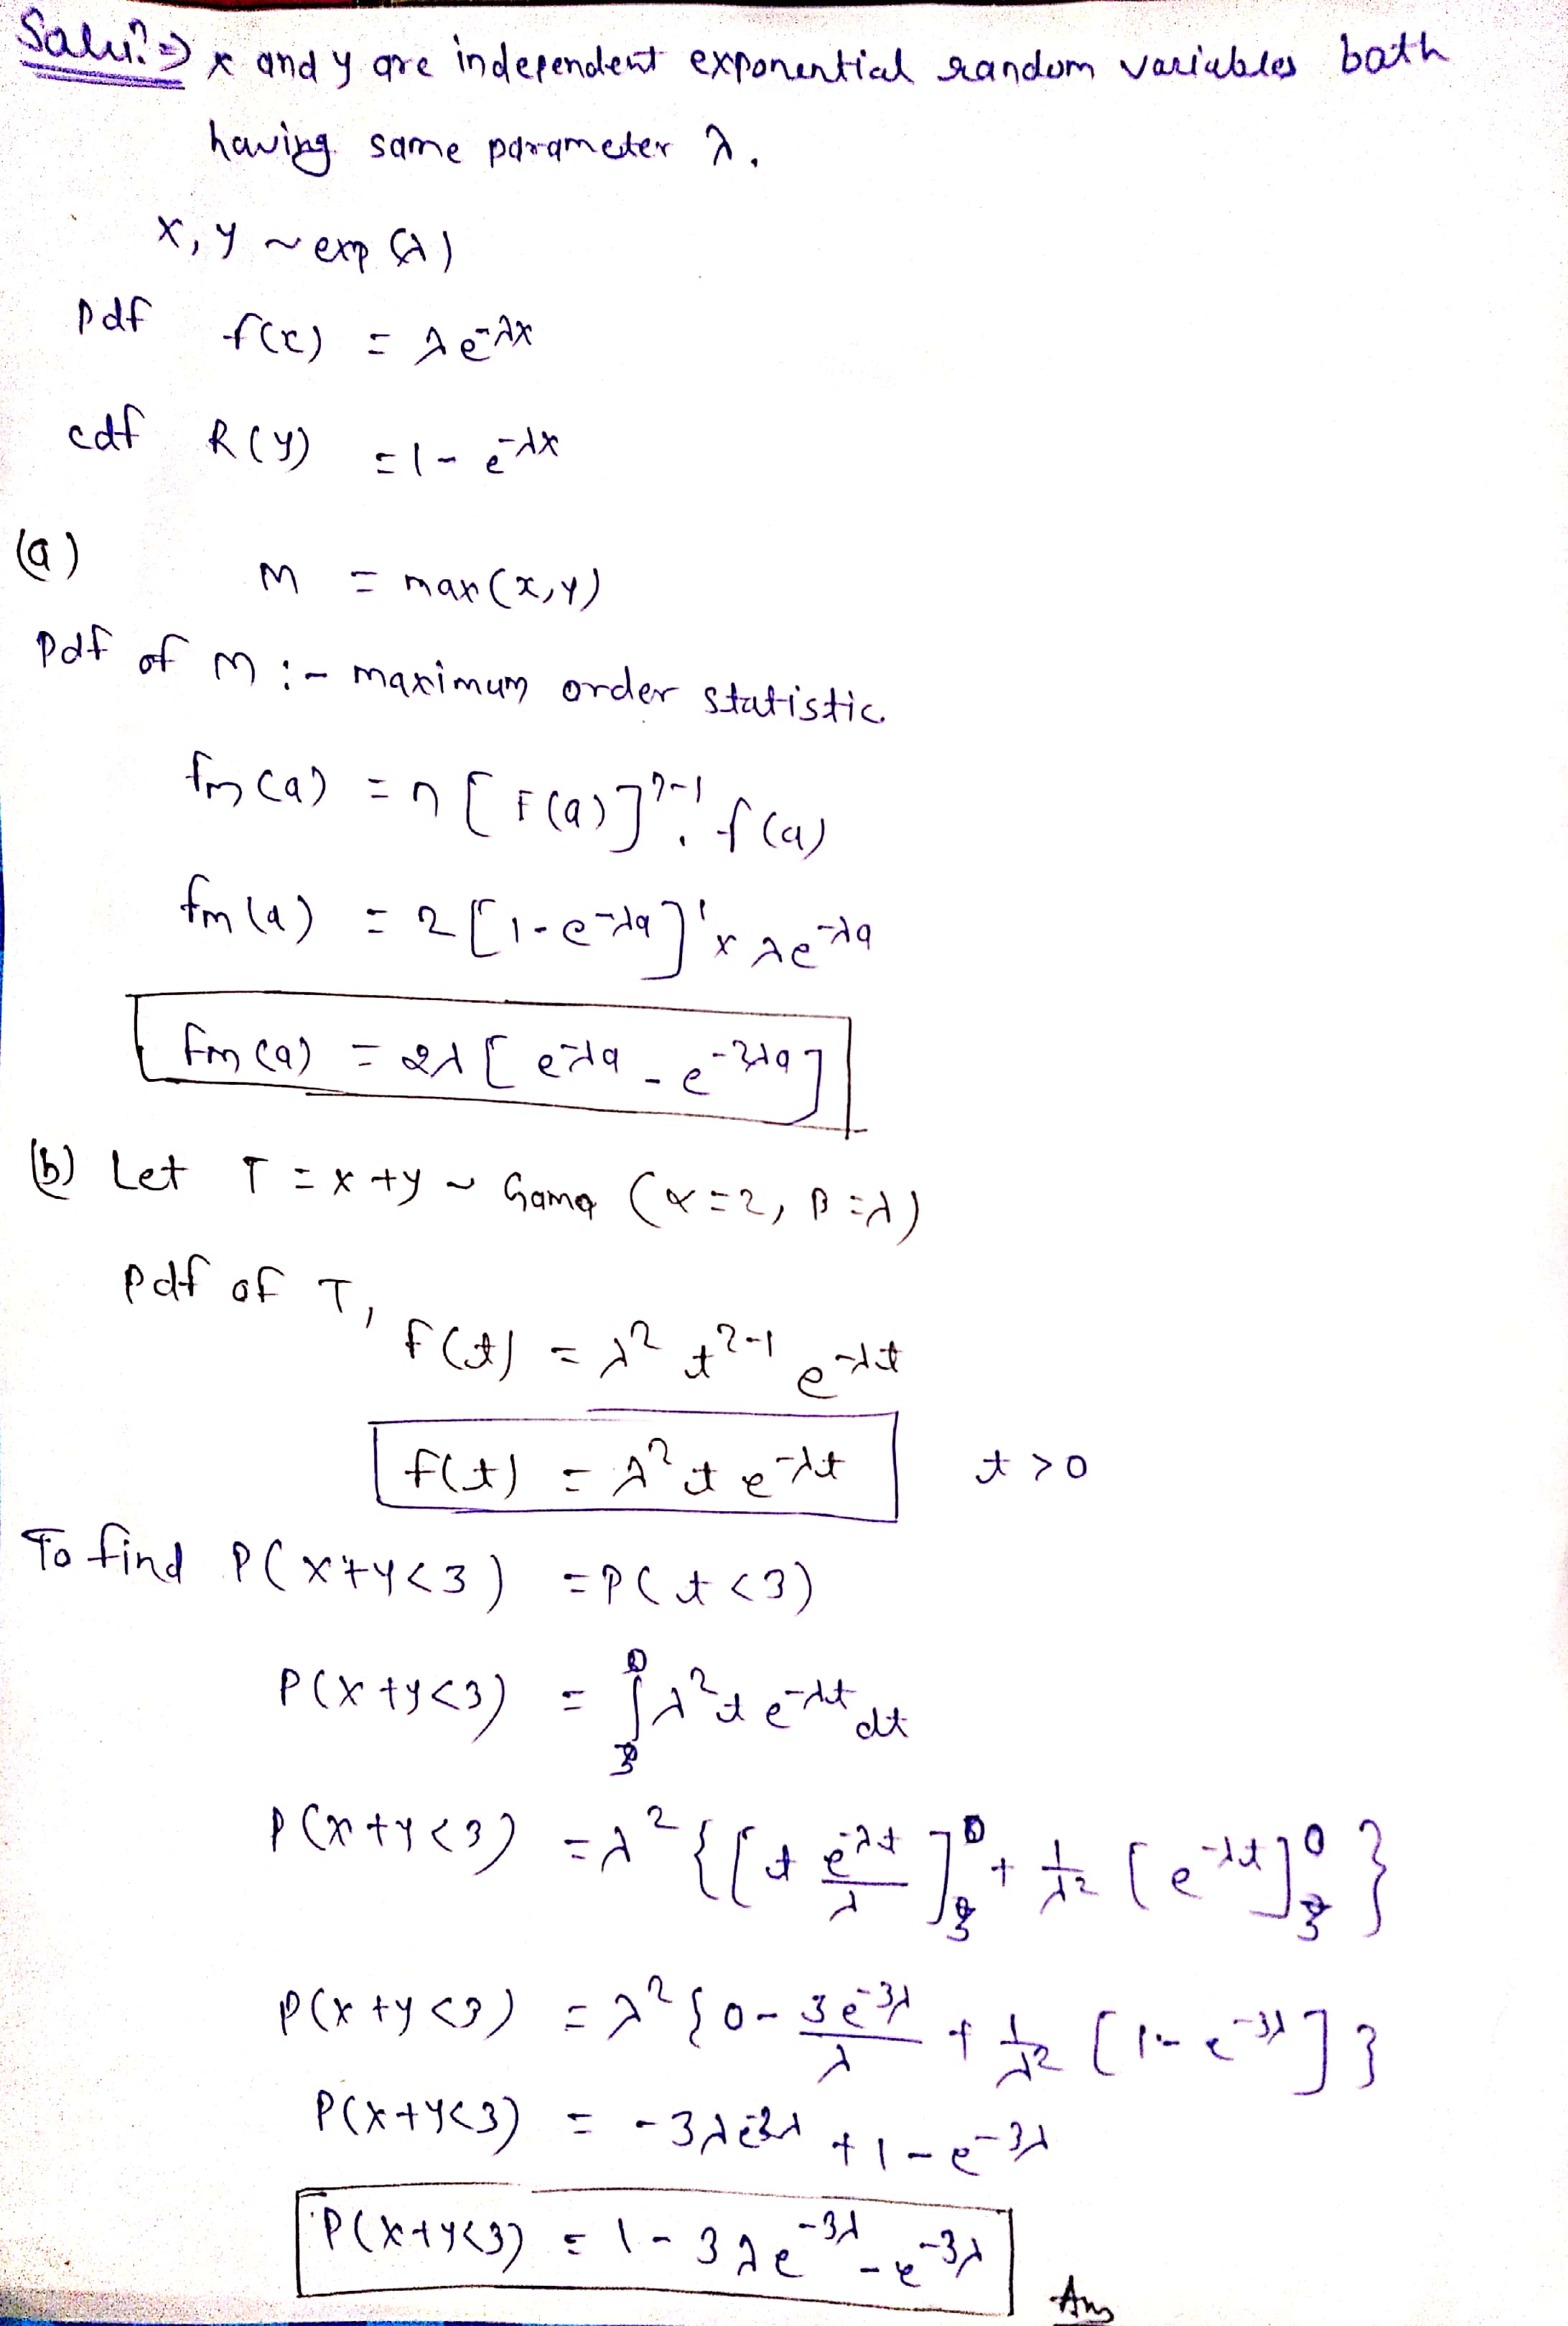 Solu? ⇒ x and y are independent exponential random variables bath
having same parameter λ.
X, y ~ exp (λ)
pdf f(x) = λe^{-λx}
cdf R(y) = 1 - e^{-λx}
(a) M = max(x,y)
Pdf of M :- maximum order statistic
fm(a) = n [F(a)]^{n-1} . f(a)
fm(a) = 2 [1-e^{-λa}]^1 x λe^{-λa}
fm(a) = 2λ [e^{-λa} - e^{-2λa}]
(b) Let T = x+y ~ Gama (α=2, β=λ)
Pdf of T,
f(t) = λ^2 t^{2-1} e^{-λt}
f(t) = λ^2 t e^{-λt} t > 0
To find P(x+y<3) = P(t<3)
P(x+y<3) = ∫_3^0 λ^2 t e^{-λt} dt
P(x+y<3) = λ^2 {[t e^{-λt}/λ]_3^0 + 1/λ^2 [e^{-λt}]_3^0}
P(x+y<3) = λ^2 {0 - 3e^{-3λ}/λ + 1/λ^2 [1-e^{-3λ}]}
P(x+y<3) = -3λe^{-3λ} + 1 - e^{-3λ}
P(x+y<3) = 1 - 3λe^{-3λ} - e^{-3λ}
Ans